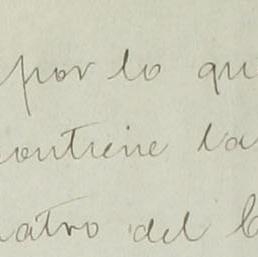 por lo qu
contiene la
uatro del C